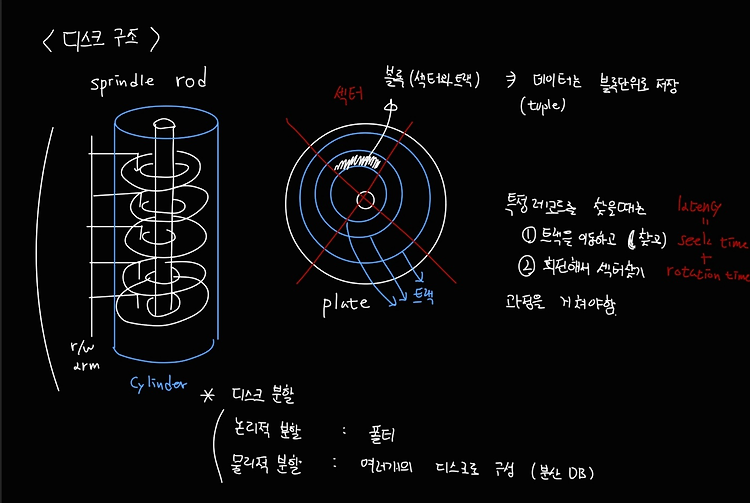 < 디스크 구조 >
sprindle rod
r/w
arm
Cylinder
섹터
블록 (섹터와 트랙) ⇒ 데이터는 블록단위로 저장
(tuple)
plate
트랙
특정 레코드를 찾을때는
① 트랙을 이동하고 (찾고)
② 회전해서 섹터찾기
과정을 거쳐야함.
latency
=
seek time
+
rotation time
* 디스크 분할
논리적 분할 : 폴더
물리적 분할 : 여러개의 디스크로 구성 (분산 DB)